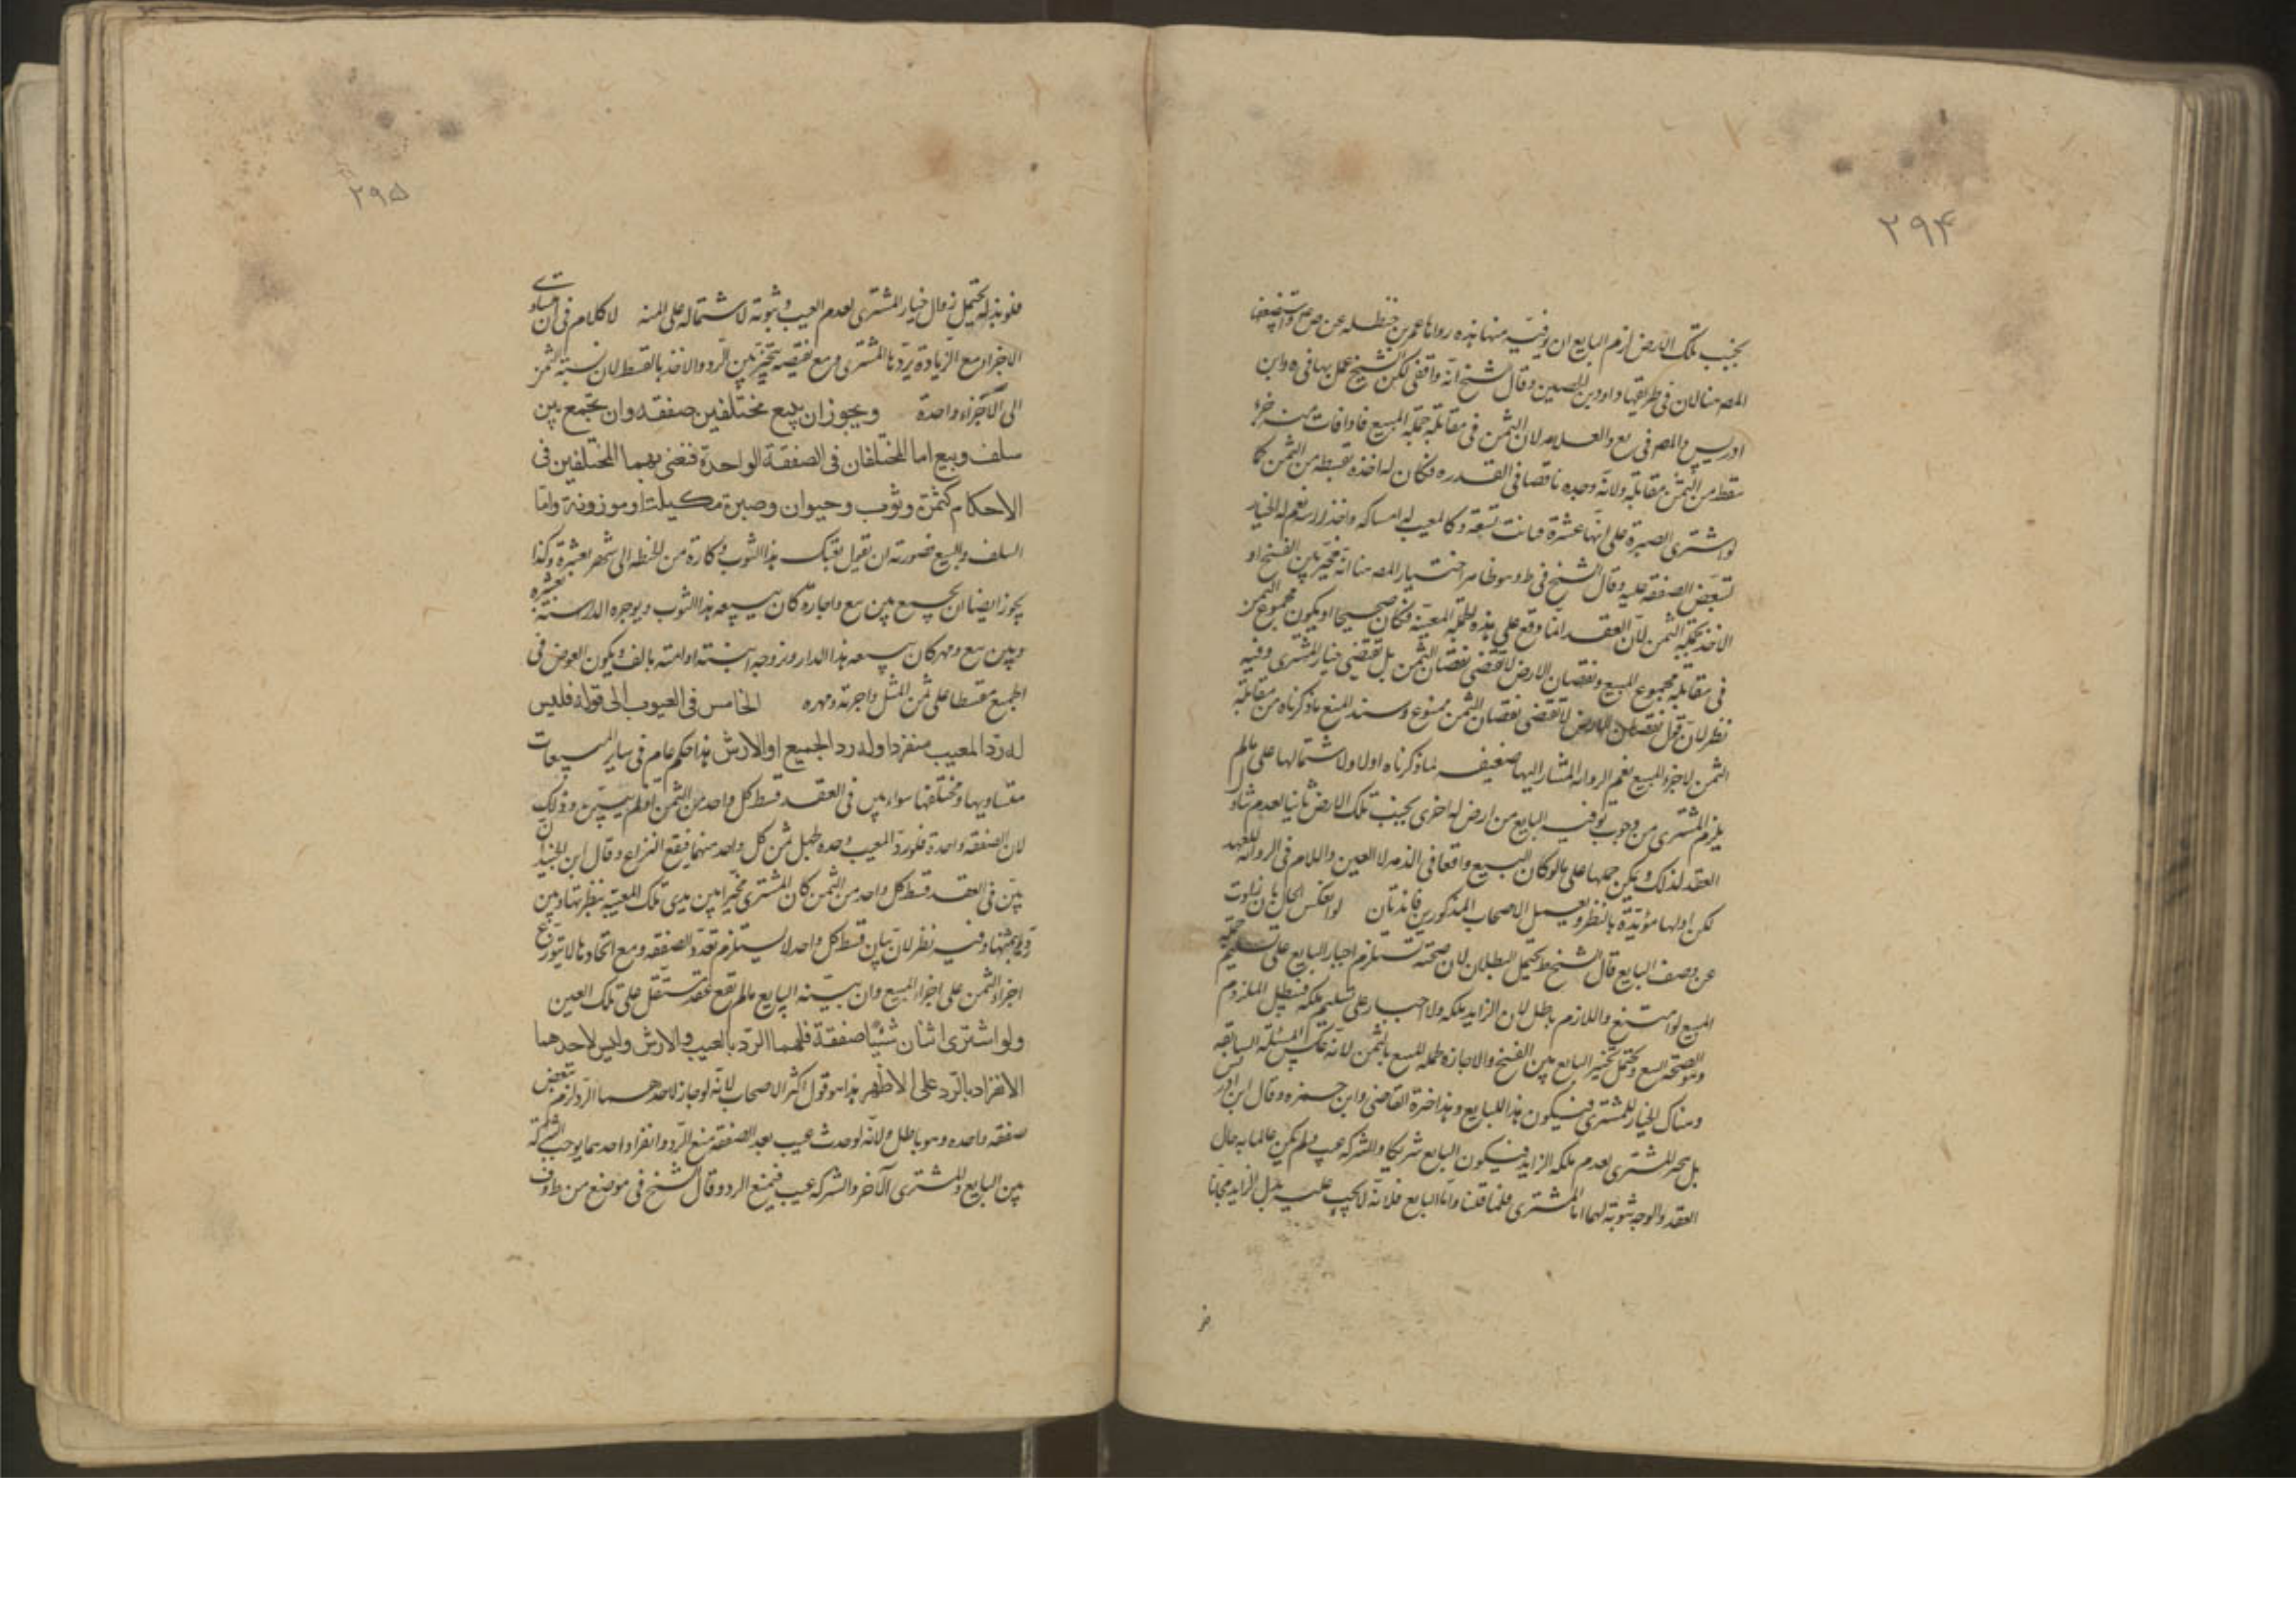 ٢٩۴
بجنب تلك الارض لزم البايع ان يوفيه منها هذه رواها عمر بن حنظله عن ص ع واستضعفها
المصه هنا لان في طريقها داود بن الحصين وقال الشيخ انه واقفي لكن الشيخ عمل بها في ه وابن
ادريس والمصه في يع والعلامه لان الثمن في مقابلة جملة المبيع فاذا فات منه جزء
سقط من الثمن مقابله ولانه وجده ناقصا في القدر فكان له اخذه بقسطه من الثمن كما
لو اشترى الصبرة على انها عشرة فبانت تسعة وكالمعيب له امساكه واخذ ارشه نعم له الخيار
لتبعض الصفقه عليه وقال الشيخ في ط وهو ظاهر اختيار المصه هنا انه مخير بين الفسخ او
الاخذ بجملة الثمن لان العقد انما وقع على هذه الجملة المعينة فكان صحيحا او يكون مجموع الثمن
في مقابلة مجموع المبيع ونقصان الارض لا يقتضى نقصان الثمن بل يقتضى خيار المشترى وفيه
نظر لان قول نقصان الارض لا يقتضى نقصان الثمن ممنوع وسند المنع ما ذكرناه من مقابلة
الثمن لاجزاء المبيع نعم الرواية المشار اليها ضعيفه لما ذكرناه اولا ولاشتمالها على ما لم
يلزم المشترى من وجوب توفيه البايع من ارض له اخرى بجنب تلك الارض ثانيا لعدم تناول
العقد لذلك ويمكن حملها على ما لو كان البيع واقعا في الذمه لا العين واللام في الرواية للعهد
لكن اولها مؤيدة بالنظر وبعمل الاصحاب المذكورين فاندتان لو انعكس الحال بان زادت
عن وصف البايع قال الشيخ ط يحتمل البطلان لان صحته تستلزم اجبار البايع على تسليم حقيه
المبيع لو امتنع واللازم باطل لان الزايد ملكه ولا اجبار على تسليم ملكه فبطل الملزوم
وهو الصحة البيع ويحتمل تخيير البايع بين الفسخ والاجازة بجملة المبيع بالثمن لانه عكس المسئلة السابقه
وهناك الخيار للمشترى فيكون هذا للبايع وهذا خيرة القاضى وابن حمزه وقال ابن ادريس
بل يخير المشترى لعدم ملكه الزايد فيكون البايع شريكا والشركه عيب ولم يكن عالما به حال
العقد والوجه ثبوته لهما اما المشترى فلما قلنا واما البايع فلانه لا يجب عليه بذل الزايد مجانا
٢٩۵
فلو بذله يحتمل زوال خيار المشترى لعدم العيب وثبوته لاشتماله على المنه لا كلام في ان متساوى
الاجزاء مع الزيادة يردها المشترى ومع نقيصه يتخير بين الرد والاخذ بالقسط لان نسبة الثمن
الى الاجزاء واحدة ويجوز ان يبيع مختلفين صفقه وان يجمع بين
سلف وبيع اما المختلفان في الصفقة الواحدة فنعنى بهما المختلفين في
الاحكام كثمرة وثوب وحيوان وصبرة مكيلة او موزونة واما
السلف والبيع فصورته ان يقول بعتك هذا الثوب وكارة من الحنطه الى شهر بعشرة وكذا
يجوز ايضا ان يجمع بين بيع واجارة كان يبيعه هذا الثوب ويوجره الدار سنة بعشره
وبين بيع ومهر كان يبيعه هذا الدار وزوجه ابنته او امته بالف ويكون العوض في
الجميع مقسطا على ثمن المثل واجرته ومهره الخامس في العيوب الى قوله فليس
له رد المعيب منفردا وله رد الجميع او الارش هذا حكم عام في ساير المبيعات
متساويها ومختلفها سواء بين في العقد قسط كل واحد من الثمن او لم يبين وذلك
لان الصفقه واحدة فلو رد المعيب وحده لجهل ثمن كل واحد منهما فيقع النزاع وقال ابن الجنيد ان
بين في العقد قسط كل واحد من الثمن كان المشترى مخيرا بين يدى تلك المعيبة بنظرتها وبين
ردها بثمنها وفيه نظر لان بيان قسط كل واحد لا يستلزم تعدد الصفقه ومع اتحادها لا يتوزع
اجزاء الثمن على اجزاء المبيع وان بينه البايع ما لم يقع عقد مستقل على تلك العين
ولو اشترى اثنان شيئا صفقة فلهما الرد بالعيب والارش وليس لاحدهما
الانفراد بالرد على الاظهر هذا هو قول اكثر الاصحاب لانه لو جاز لاحدهما الرد لزم تبعض
صفقه واحده وهو باطل ولانه لو حدث عيب بعد الصفقة منع الرد وانفراد احدهما يوجب الشركة
بين البايع والمشترى الآخر والشركه عيب فيمنع الرد وقال الشيخ في موضع من ط وف